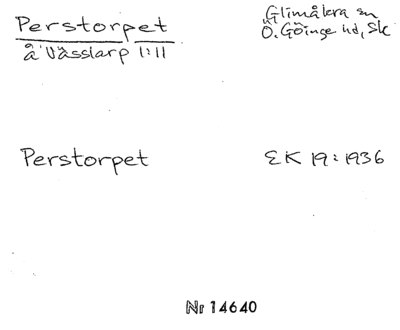 Perstorpet
å Vässlarp 1:11
Glimåkra sn
Ö. Göinge hd, Sk
Perstorpet
EK 19:1936
Nr 14640